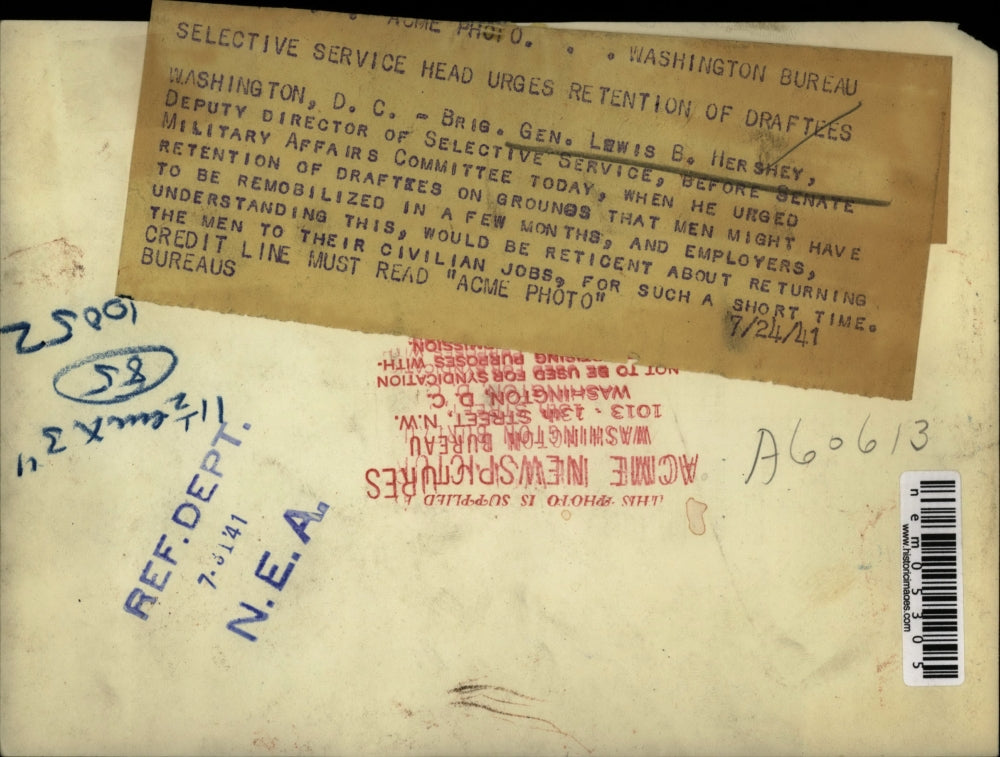 ACME PHOTO. . . WASHINGTON BUREAU
SELECTIVE SERVICE HEAD URGES RETENTION OF DRAFTEES
WASHINGTON, D. C. - BRIG. GEN. LEWIS B. HERSHEY,
DEPUTY DIRECTOR OF SELECTIVE SERVICE, BEFORE SENATE
MILITARY AFFAIRS COMMITTEE TODAY, WHEN HE URGED
RETENTION OF DRAFTEES ON GROUNDS THAT MEN MIGHT HAVE
TO BE REMOBILIZED IN A FEW MONTHS, AND EMPLOYERS,
UNDERSTANDING THIS, WOULD BE RETICENT ABOUT RETURNING
THE MEN TO THEIR CIVILIAN JOBS, FOR SUCH A SHORT TIME.
CREDIT LINE MUST READ "ACME PHOTO" 7/24/41
BUREAUS
10052
85
THIS PHOTO IS SUPPLIED
ACME NEWSPICTURES
WASHINGTON BUREAU
1013 - 13th STREET, N.W.
WASHINGTON, D. C.
NOT TO BE USED FOR SYNDICATION
PURPOSES WITH-
A60613
REF. DEPT.
7-31'41
N. E. A.
nem05305
www.historicimages.com